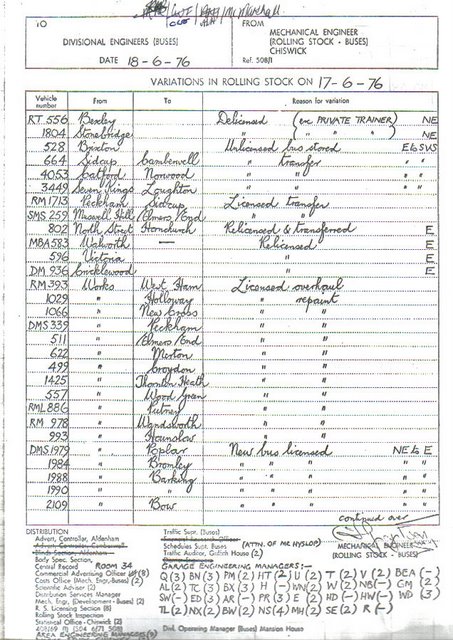 TO
DIVISIONAL ENGINEERS (BUSES)
DATE 18-6-76
FROM
MECHANICAL ENGINEER
(ROLLING STOCK - BUSES)
CHISWICK
Ref. 508/1
VARIATIONS IN ROLLING STOCK ON 17-6-76
Vehicle number From To Reason for variation
RT 556 Bexley Delicensed (ex PRIVATE TRAINER) NE
1804 Stonebridge " ( " " ) NE
528 Brixton Unlicensed bus stored E to SVS
664 Sidcup Camberwell " transfer " "
4053 Catford Norwood " " " "
3449 Seven Kings Loughton " " " "
RM 1713 Peckham Sidcup Licensed transfer
SMS 259 Muswell Hill Elmers End " "
802 North Street Hornchurch Relicensed & transferred E
MBA 583 Walworth — Relicensed E
596 Victoria " E
DM 936 Cricklewood " E
RM 393 Works West Ham Licensed overhaul
1029 " Holloway " repaint
1066 " New Cross " "
DMS 339 " Peckham " "
511 " Elmers End " "
622 " Merton " "
499 " Croydon " "
1425 " Thornton Heath " "
557 " Wood Green " "
RML 886 " Putney " "
RM 978 " Wandsworth " "
993 " Hounslow " "
DMS 1979 " Poplar New bus licensed NE to E
1984 " Bromley " " " " "
1988 " Barking " " " " "
1990 " " " " " " "
2109 " Bow " " " " "
continued over
MECHANICAL ENGINEER
(ROLLING STOCK - BUSES)
DISTRIBUTION
Advert. Controller, Aldenham
Body Spec. Section,
Central Record ROOM 34
Commercial Advertising Officer (8)
Costs Office (Mech. Engr.-Buses) (2)
Scientific Adviser (2)
Distribution Services Manager
Mech. Engr. (Development - Buses) (2)
R. S. Licensing Section (8)
Rolling Stock Inspection
Statistical Office - Chiswick (2)
AREA ENGINEERING MANAGERS (9)
Traffic Supt. (Buses)
Schedules Supt. Buses (ATTN. OF MR HYSLOP)
Traffic Auditor, Griffith House (2)
GARAGE ENGINEERING MANAGERS :-
Q (3) BN (3) PM (2) HT (2) U (2) T (2) V (2) BEA (-)
AL (2) TC (3) BX (3) H (-) WN (2) W (2) NB (-) GM (2)
SW (-) ED (3) AR (-) PR (3) E (2) HD (-) HW (-) WD (3)
TL (2) NX (2) BW (2) NS (4) MH (2) SE (2) R (-)
Divl. Operating Manager (Buses) Mansion House